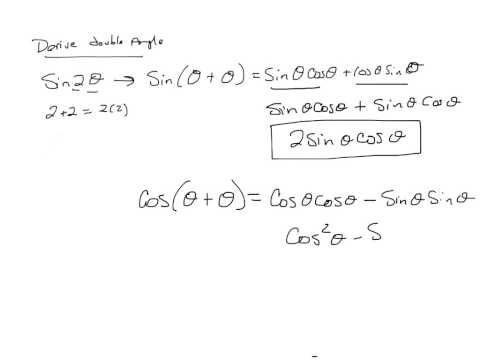 Derive double Angle
Sin 2θ → Sin(θ + θ) = Sin θ Cos θ + Cos θ Sin θ
2+2 = 2(2)
Sin θ Cos θ + Sin θ Cos θ
2 Sin θ Cos θ
Cos(θ + θ) = Cos θ Cos θ − Sin θ Sin θ
Cos²θ − S